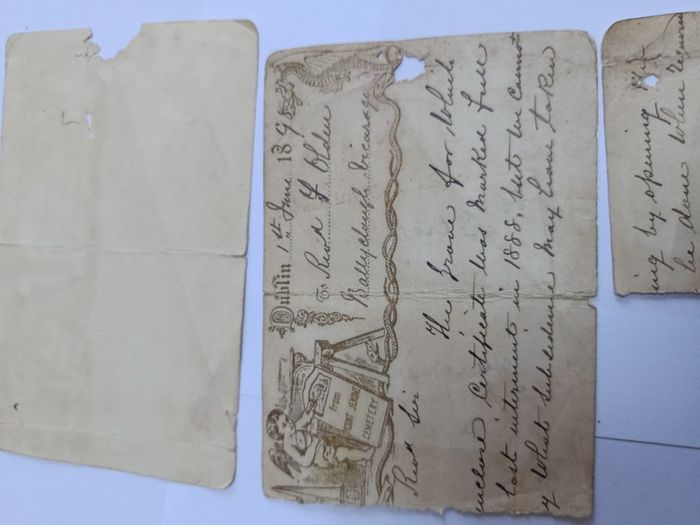 Dublin 1st June 189
To Revd Olden
Ballyclough Vicarage
from
MOUNT JEROME
CEMETERY
Revd Sir
The Grave for which
enclose Certificate was marked full
last interment in 1888, but we cannot
what subsidence may have taken
ing by opening
be done when required